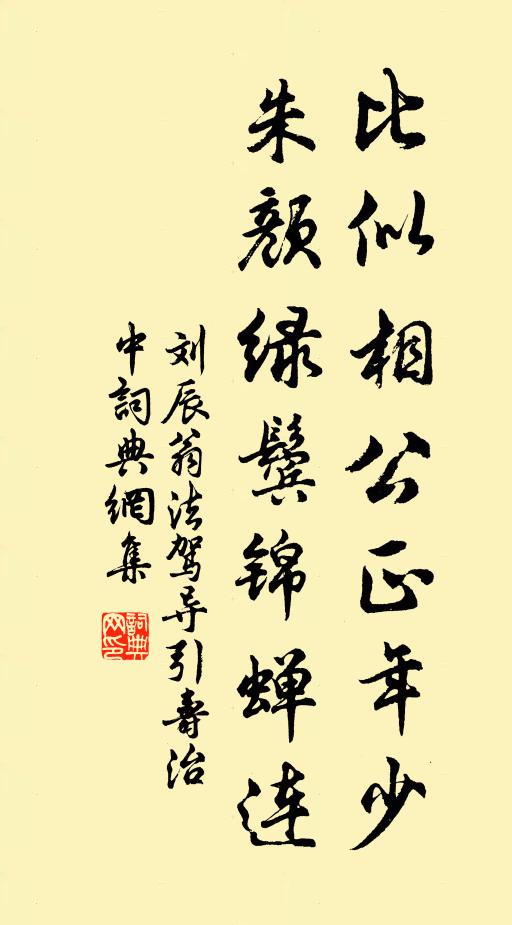 比似相公正年少
朱颜绿鬓锦蝉连
刘辰翁法驾导引寿治
中詞典網集
詞典网印